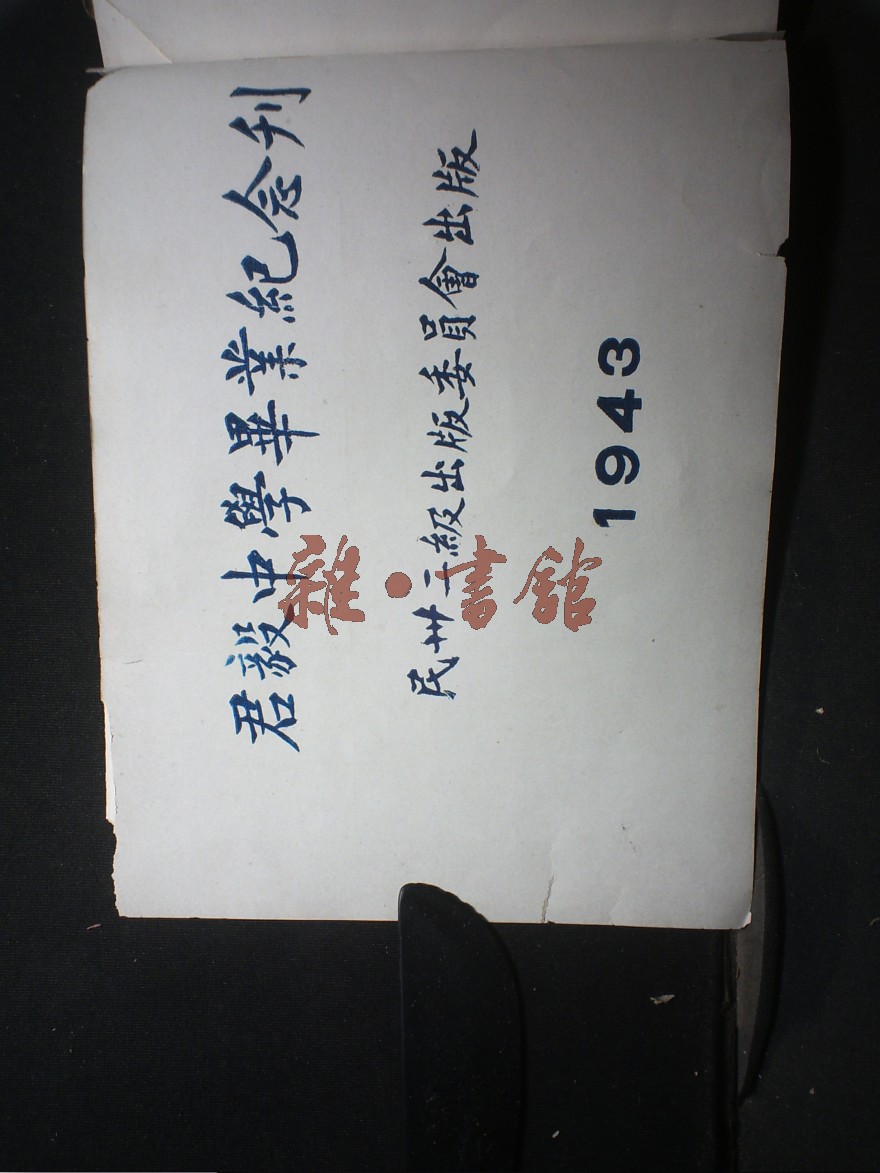 君毅中學畢業紀念刊
民卅二級出版委員會出版
1943
雜·書館